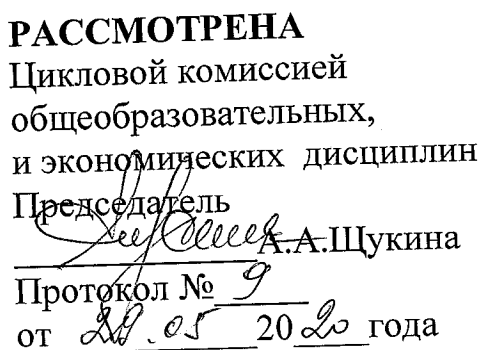 РАССМОТРЕНА
Цикловой комиссией
общеобразовательных,
и экономических дисциплин
Председатель
А.А.Щукина
Протокол № 9
от 29.05 2020 года